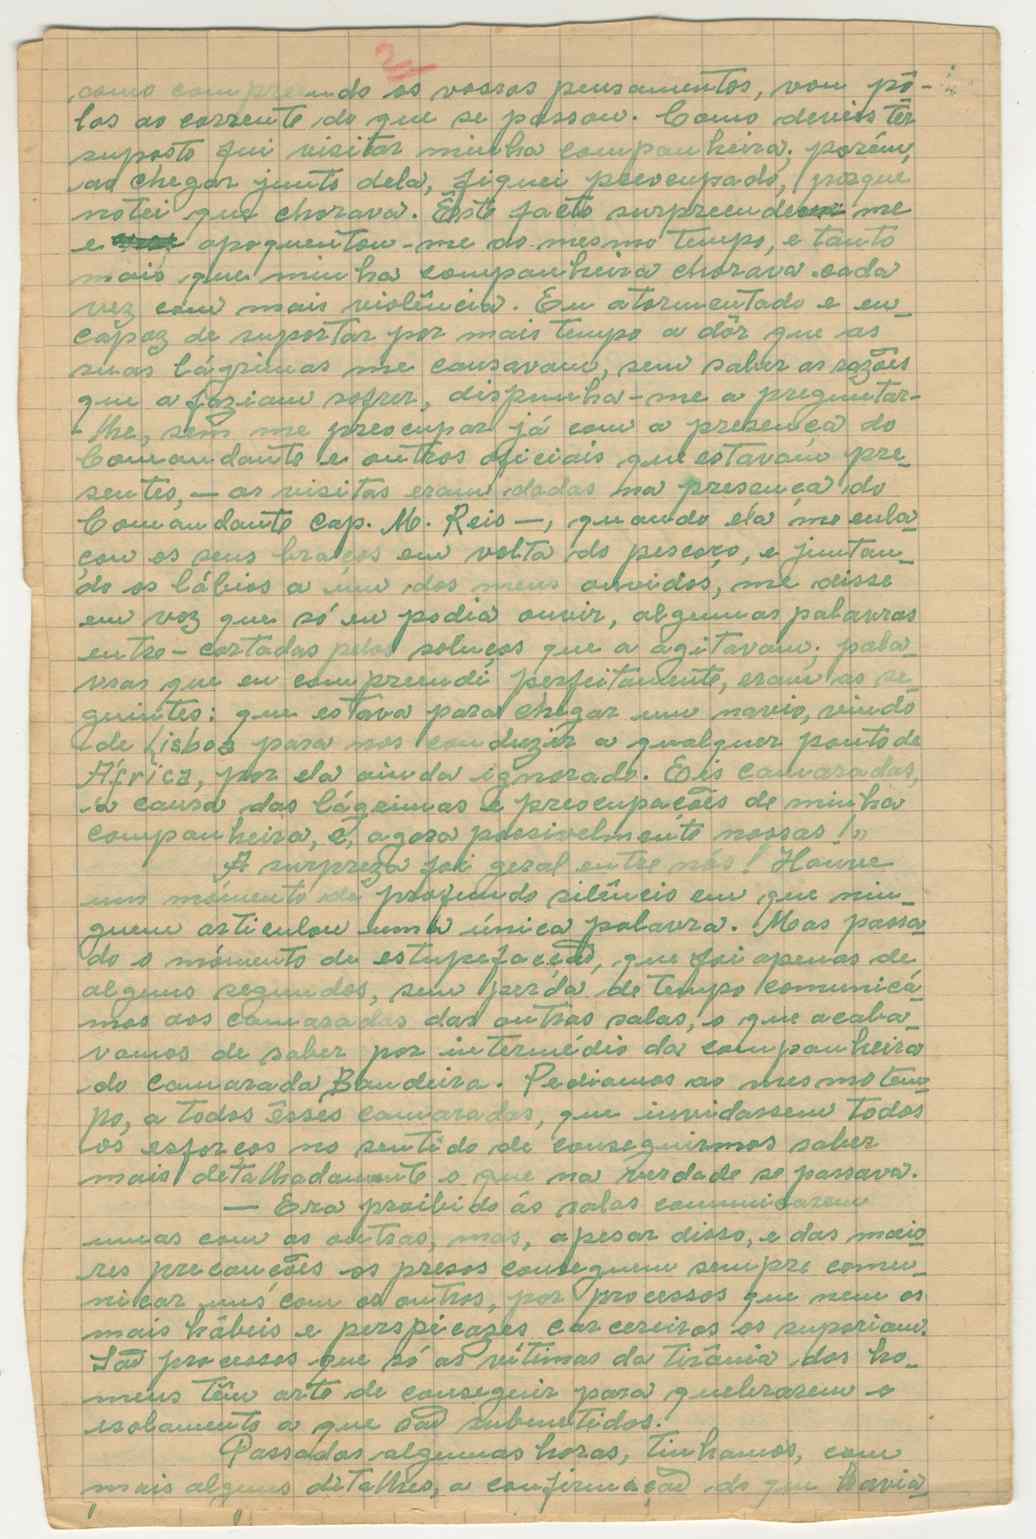 como compreendo os vossos pensamentos, vou pô-
los ao corrente do que se passou. Como deveis têr
suposto fui visitar minha companheira; porém,
ao chegar junto dela, fiquei preocupado, porque
notei que chorava. Êste facto surpreendeu me
e apoquentou-me ao mesmo tempo, e tanto
mais que minha companheira chorava cada
vez com mais violência. Eu atormentado e en-
capaz de suportar por mais tempo a dôr que as
suas lágrimas me causavam, sem saber as razões
que a faziam sofrer, dispunha-me a preguntar-
-lhe, sem me preocupar já com a presença do
Comandante e outros oficiais que estavam pre-
sentes, — as visitas eram dadas na presença do
Comandante cap. M. Reis —, quando ela me enla-
çou os seus braços em volta do pescoço, e juntan-
do os lábios a um dos meus ouvidos, me disse
em voz que só eu podia ouvir, algumas palavras
entre-cortadas pelos soluços que a agitavam; pala-
vras que eu compreendi perfeitamente, eram as se-
guintes: que estava para chegar um navio, vindo
de Lisboa para nos conduzir a qualquer ponto de
África, por ela ainda ignorado. Eis camaradas,
a causa das lágrimas e preocupações de minha
companheira, e, agora possivelmente nossas!»
A surpreza foi geral entre nós! Houve
um momento de profundo silêncio em que nin-
guem articulou uma única palavra. Mas passa-
do o momento de estupefacção, que foi apenas de
alguns segundos, sem perda de tempo comunicá-
mos aos camaradas das outras salas, o que acaba-
vamos de saber por intermédio da companheira
do camarada Bandeira. Pediamos ao mesmo tem-
po, a todos êsses camaradas, que invidassem todos
os esforços no sentido de conseguirmos saber
mais detalhadamente o que na verdade se passava.
— Era proibido ás salas communicarem
umas com as outras, mas, apesar disso, e das maio-
res precauções os presos conseguem sempre comu-
nicar uns com os outros, por processos que nem os
mais hábeis e perspicazes carcereiros os suporiam.
São processos que só as vítimas da tirânia dos ho-
mens têm arte de conseguir para quebrarem o
esolamento a que são submetidos.
Passadas algumas horas, tinhamos, com
mais alguns detalhes, a confirmação do que havia